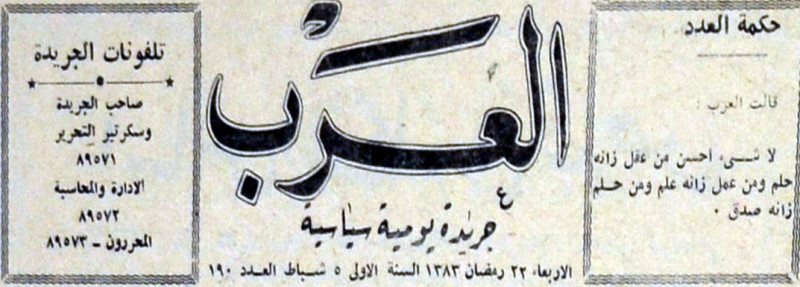 حكمة العدد
قالت العرب :
لا شىء احسن من عقل زانه
حلم ومن عمل زانه علم ومن حلم
زانه صدق .
العرب
جريدة يومية سياسية
الاربعاء ٢٢ رمضان ١٣٨٣ السنة الاولى ٥ شباط العدد ١٩٠
تلفونات الجريدة
صاحب الجريدة
وسكرتير التحرير
٨٩٥٧١
الادارة والمحاسبة
٨٩٥٧٢
المحررون - ٨٩٥٧٣